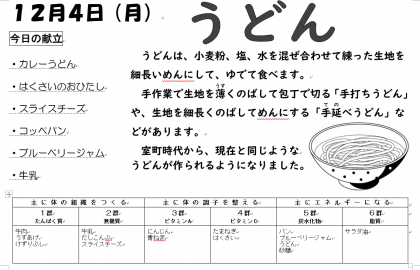 12月4日（月）
うどん
今日の献立
・カレーうどん
・はくさいのおひたし
・スライスチーズ
・コッペパン
・ブルーベリージャム
・牛乳
うどんは、小麦粉、塩、水を混ぜ合わせて練った生地を
細長いめんにして、ゆでて食べます。
手作業で生地を薄くのばして包丁で切る「手打ちうどん」
や、生地を細長くのばしてめんにする「手延べうどん」な
どがあります。
室町時代から、現在と同じような
うどんが作られるようになりました。
主に体の組織をつくる 主に体の調子を整える 主にエネルギーになる
1群 2群 3群 4群 5群 6群
たんぱく質 無機質 ビタミンA ビタミンC 炭水化物 脂質
牛肉 牛乳 にんじん たまねぎ パン サラダ油
うすあげ だしこんぶ 青ねぎ はくさい ブルーベリージャム
けずりぶし スライスチーズ うどん
砂糖